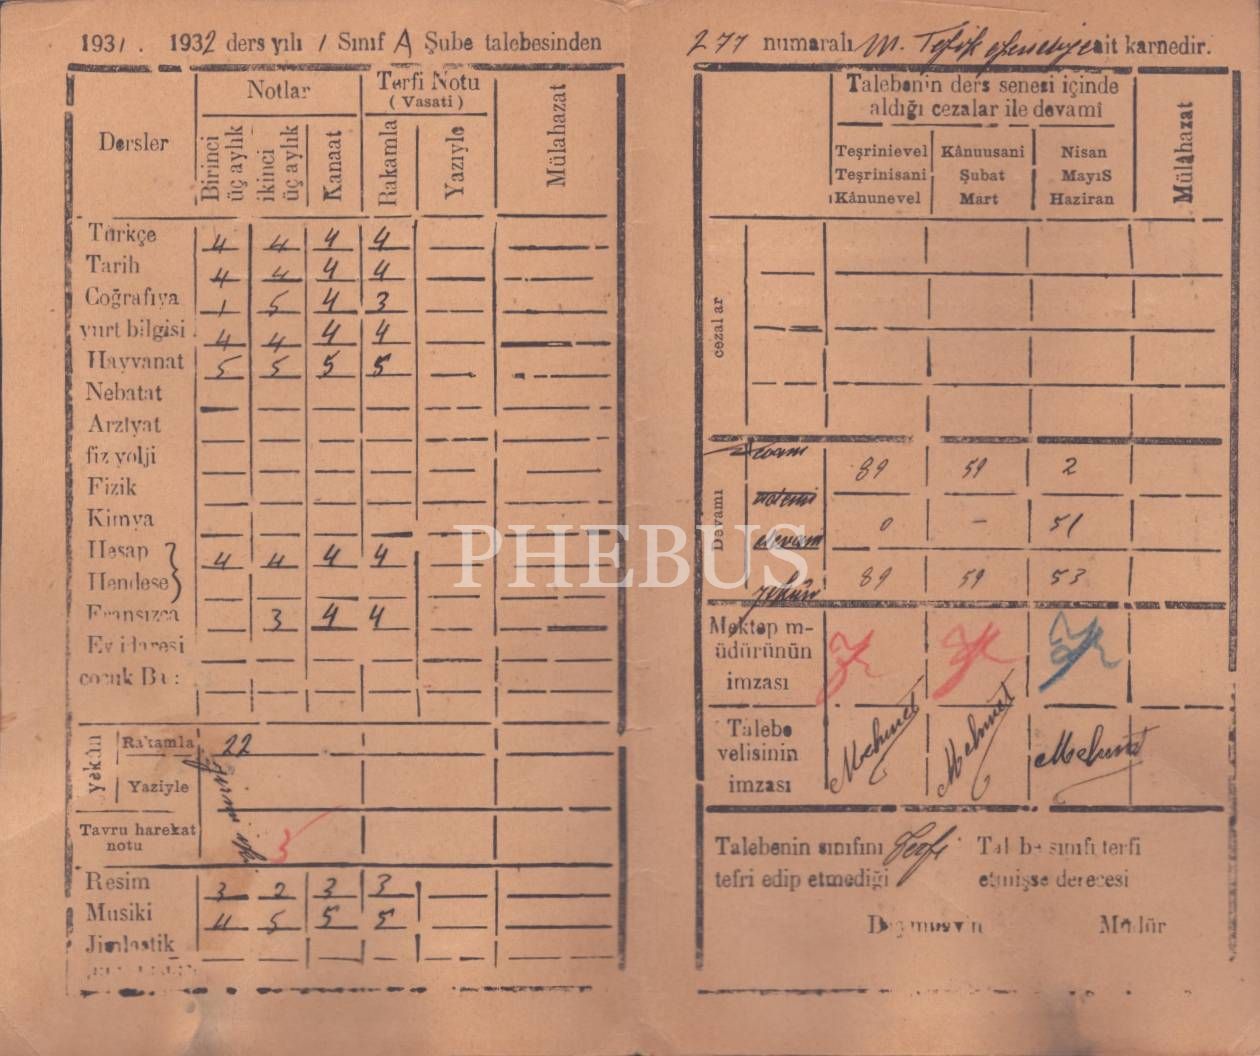 1931. 1932 ders yılı 1 Sınıf A Şube talebesinden
Dersler
Notlar
Terfi Notu
( Vasati )
Mülahazat
Birinci
üç aylık
ikinci
üç aylık
Kanaat
Rakamla
Yazıyle
Türkçe 4 4 4 4
Tarih 4 4 4 4
Coğrafıya 1 5 4 3
yurt bilgisi 4 4 4 4
Hayvanat 5 5 5 5
Nebatat
Arziyat
fiz yolji
Fizik
Kimya
Hesap 4 4 4 4
Hendese
Fransızca 3 4 4
Ev idaresi
çocuk Ba :
yekûn
Rakamla 22
Yaziyle
Tavru harekat
notu 5
Resim 3 2 3 3
Musiki 4 5 5 5
Jimlastik
277 numaralı M. Tefik efendiye ait karnedir.
Talebenin ders senesi içinde
aldığı cezalar ile devamı
Mülahazat
Teşrinievel Kânuusani Nisan
Teşrinisani Şubat MayıS
Kânunevel Mart Haziran
cezalar
Devamı
89 59 2
0 - 51
devam
89 59 53
yekûn
Mektep m-
üdürünün
imzası
Talebe
velisinin
imzası
Mehmet Mehmet Mehmet
Talebenin sınıfını Terfi
tefri edip etmediği
Talebe sınıfı terfi
etmişse derecesi
Müdür
PHEBUS